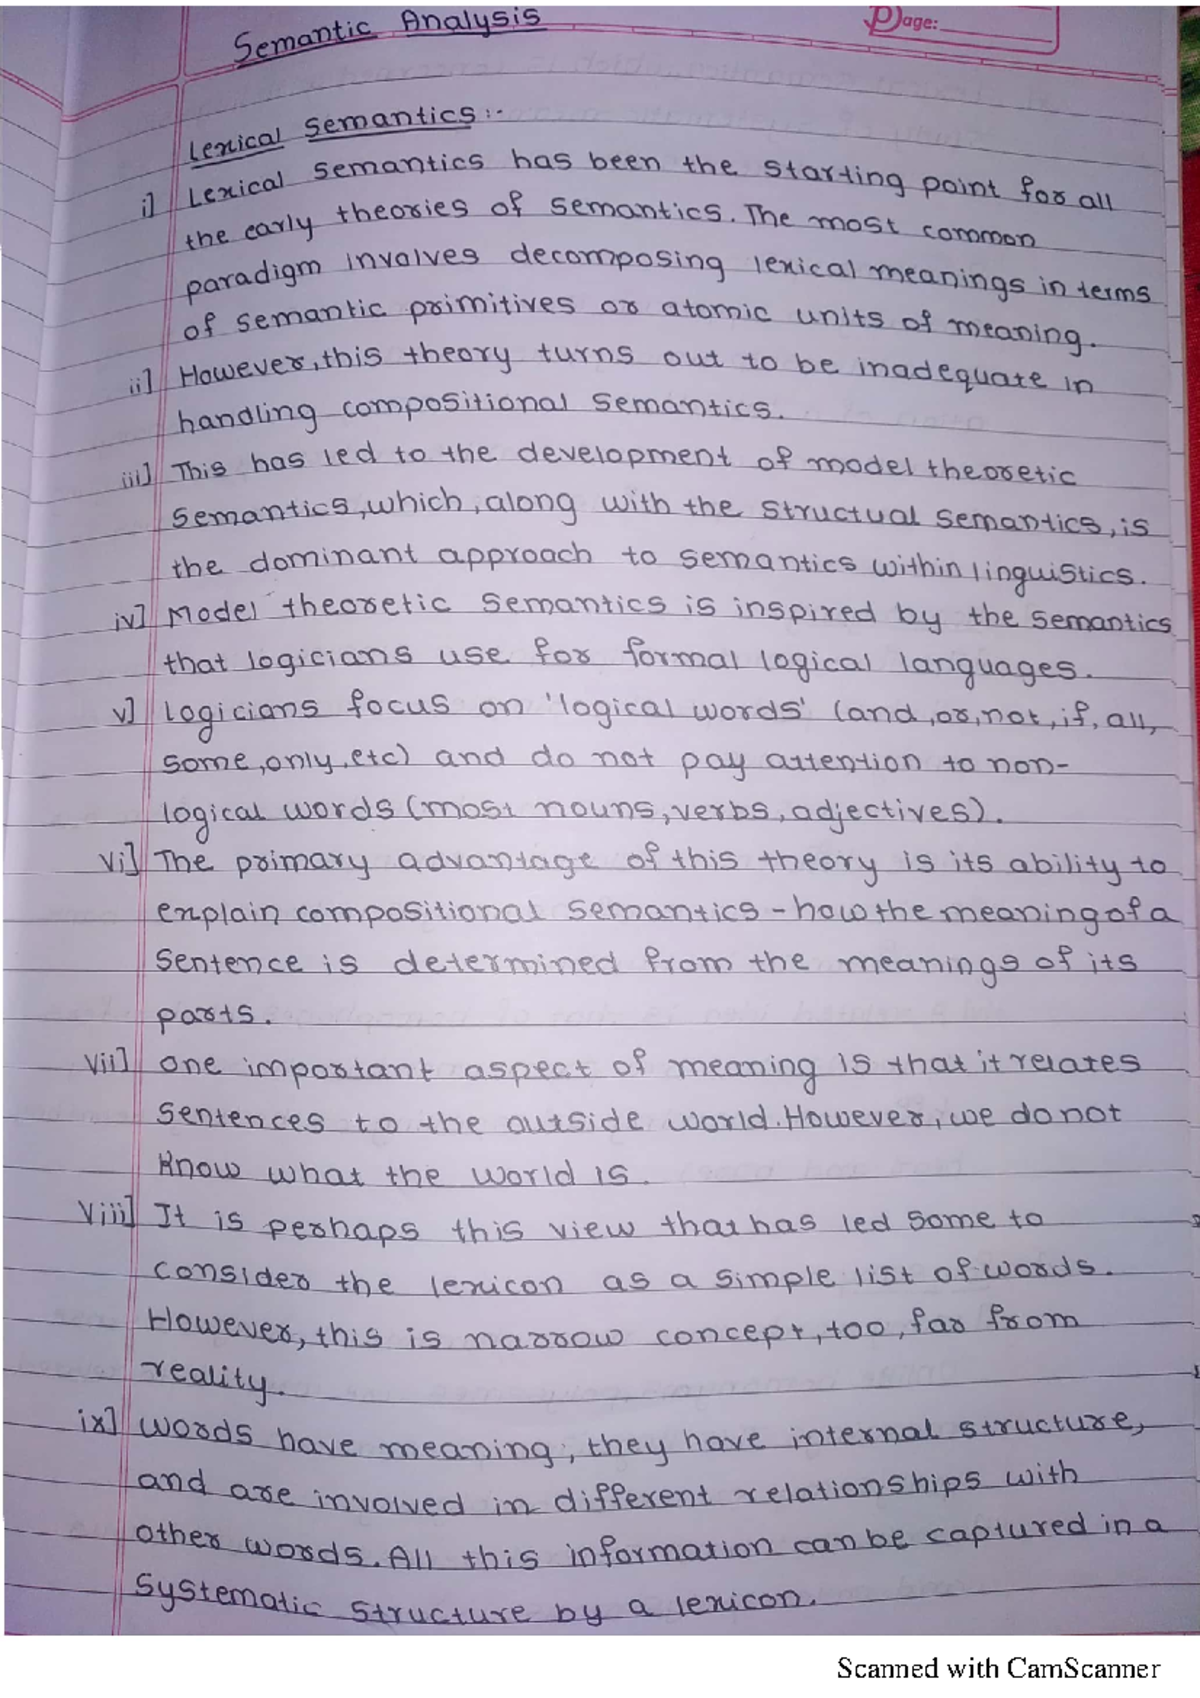 Semantic Analysis
Page:
Lexical Semantics:-
i] Lexical Semantics has been the starting point for all
the early theories of semantics. The most common
paradigm involves decomposing lexical meanings in terms
of semantic primitives or atomic units of meaning.
ii] However, this theory turns out to be inadequate in
handling compositional semantics.
iii] This has led to the development of model theoretic
semantics, which, along with the structual semantics, is
the dominant approach to semantics within linguistics.
iv] Model theoretic semantics is inspired by the semantics
that logicians use for formal logical languages.
v] Logicians focus on 'logical words' (and, or, not, if, all,
some, only, etc) and do not pay attention to non-
logical words (most nouns, verbs, adjectives).
vi] The primary advantage of this theory is its ability to
explain compositional semantics - how the meaning of a
sentence is determined from the meanings of its
parts.
vii] One important aspect of meaning is that it relates
sentences to the outside world. However, we do not
know what the world is.
viii] It is perhaps this view that has led some to
consider the lexicon as a simple list of words.
However, this is narrow concept, too, far from
reality.
ix] Words have meaning, they have internal structure,
and are involved in different relationships with
other words. All this information can be captured in a
systematic structure by a lexicon.
Scanned with CamScanner